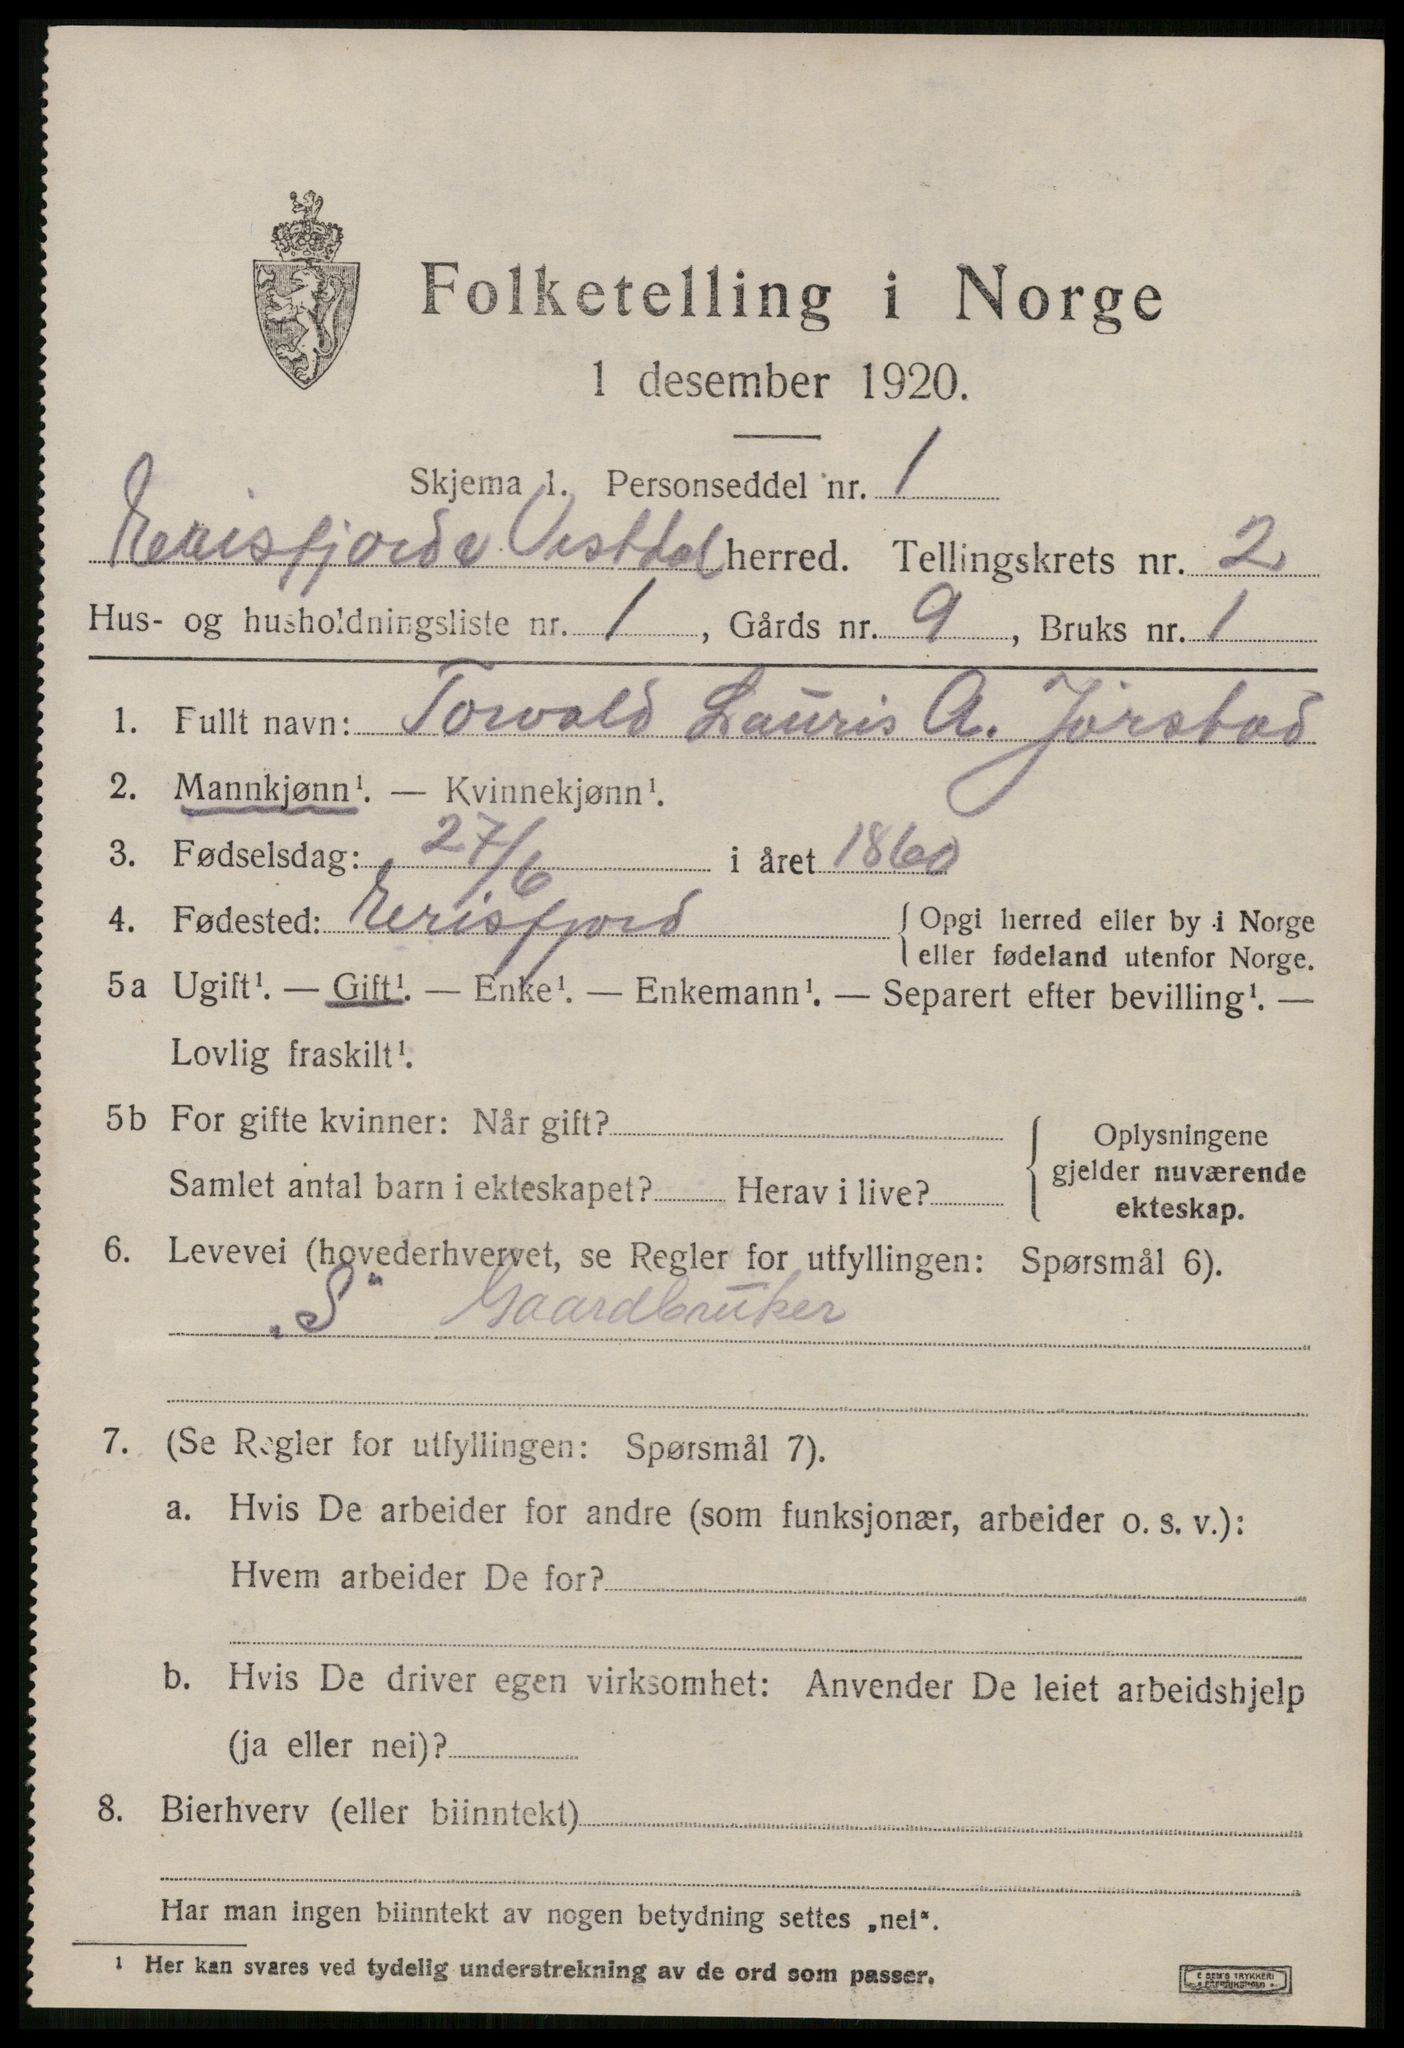 Folketelling i Norge
1 desember 1920.
Skjema 1. Personseddel nr. 1
Eirisfjord & Vistdal herred. Tellingskrets nr. 2
Hus- og husholdningsliste nr. 1, Gårds nr. 9, Bruks nr. 1
1. Fullt navn: Torvald Lauris A. Jørstad
2. Mannkjønn¹. — Kvinnekjønn¹.
3. Fødselsdag: 27/6 i året 1860
4. Fødested: Eirisfjord { Opgi herred eller by i Norge
eller fødeland utenfor Norge.
5a Ugift¹. — Gift¹. — Enke¹. — Enkemann¹. — Separert efter bevilling¹. —
Lovlig fraskilt¹.
5b For gifte kvinner: Når gift?
Samlet antal barn i ekteskapet? Herav i live?
{ Oplysningene
gjelder nuværende
ekteskap.
6. Levevei (hovederhvervet, se Regler for utfyllingen: Spørsmål 6).
„S" Gaardbruker
7. (Se Regler for utfyllingen: Spørsmål 7).
a. Hvis De arbeider for andre (som funksjonær, arbeider o. s. v.):
Hvem arbeider De for?
b. Hvis De driver egen virksomhet: Anvender De leiet arbeidshjelp
(ja eller nei)?
8. Bierhverv (eller biinntekt)
Har man ingen biinntekt av nogen betydning settes „nei".
¹ Her kan svares ved tydelig understrekning av de ord som passer.